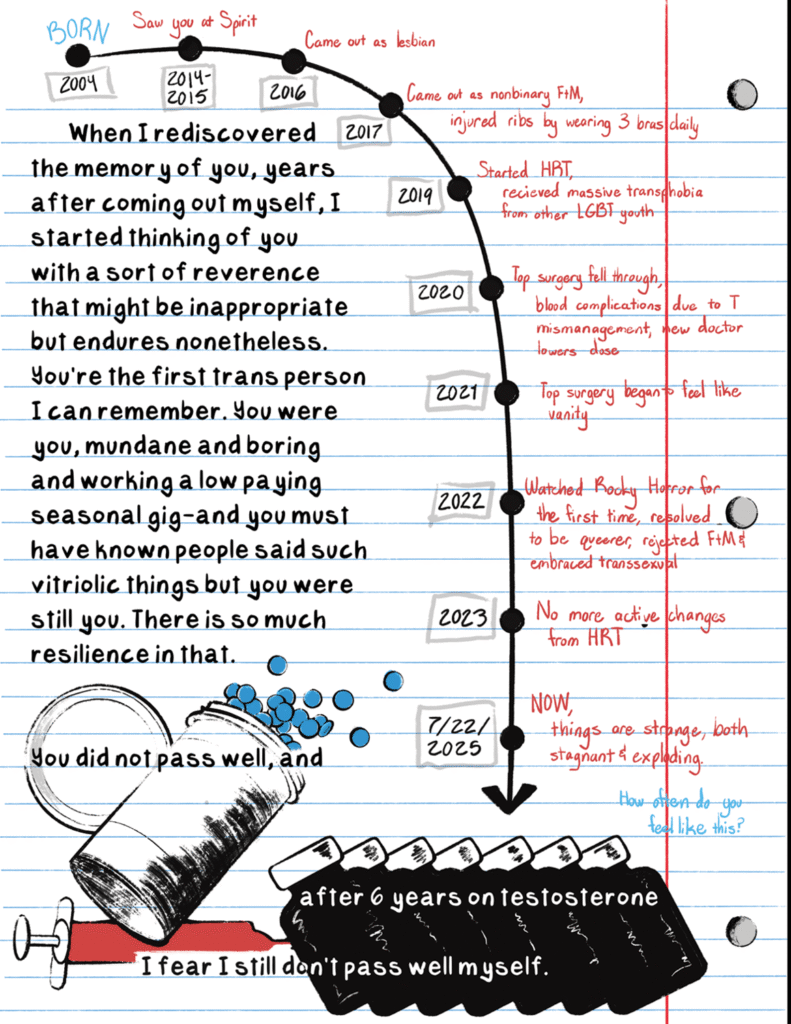 BORN
Saw you at Spirit
Came out as lesbian
2004
2014-
2015
2016
Came out as nonbinary FtM,
injured ribs by wearing 3 bras daily
2017
Started HRT,
recieved massive transphobia
from other LGBT youth
2019
Top surgery fell through,
blood complications due to T
mismanagement, new doctor
lowers dose
2020
Top surgery began to feel like
vanity
2021
Watched Rocky Horror for
the first time, resolved
to be queerer, rejected FtM &
embraced transsexual
2022
No more active changes
from HRT
2023
NOW,
things are strange, both
stagnant & exploding.
7/22/
2025
How often do you
feel like this?
When I rediscovered
the memory of you, years
after coming out myself, I
started thinking of you
with a sort of reverence
that might be inappropriate
but endures nonetheless.
You're the first trans person
I can remember. You were
you, mundane and boring
and working a low paying
seasonal gig-and you must
have known people said such
vitriolic things but you were
still you. There is so much
resilience in that.
You did not pass well, and
after 6 years on testosterone
I fear I still don't pass well myself.